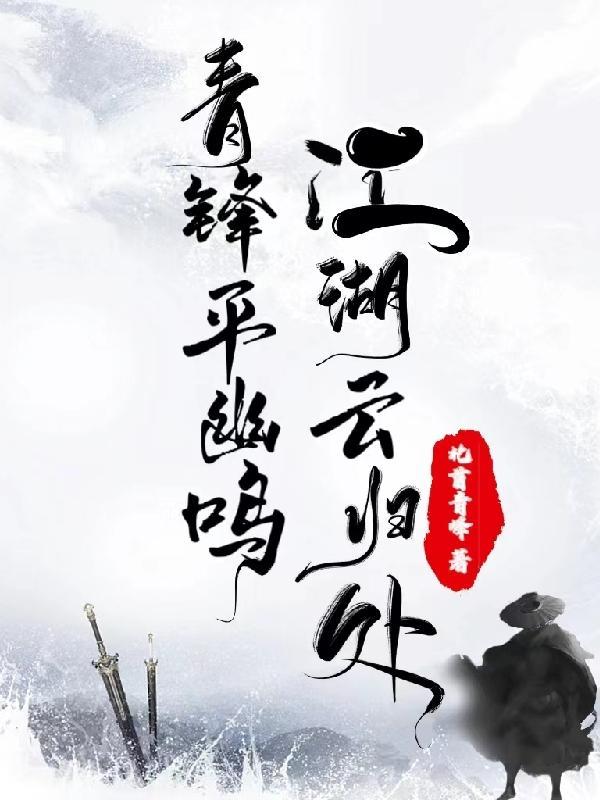 江湖云归处
青锋平幽鸣
青峰 著